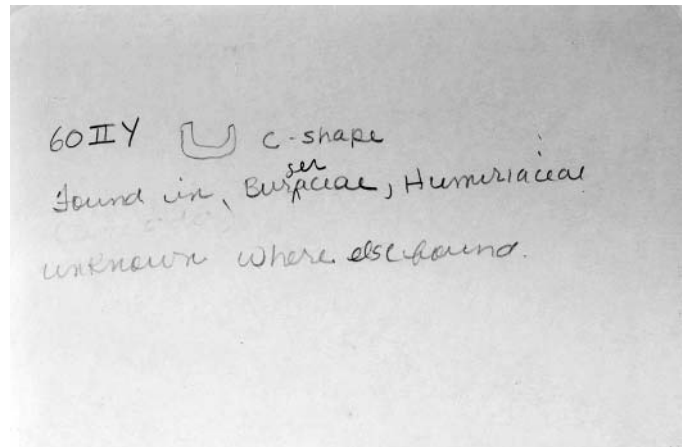 60 II Y C-shape
Found in, Burseraceae, Humiriaceae
unknown where else found.